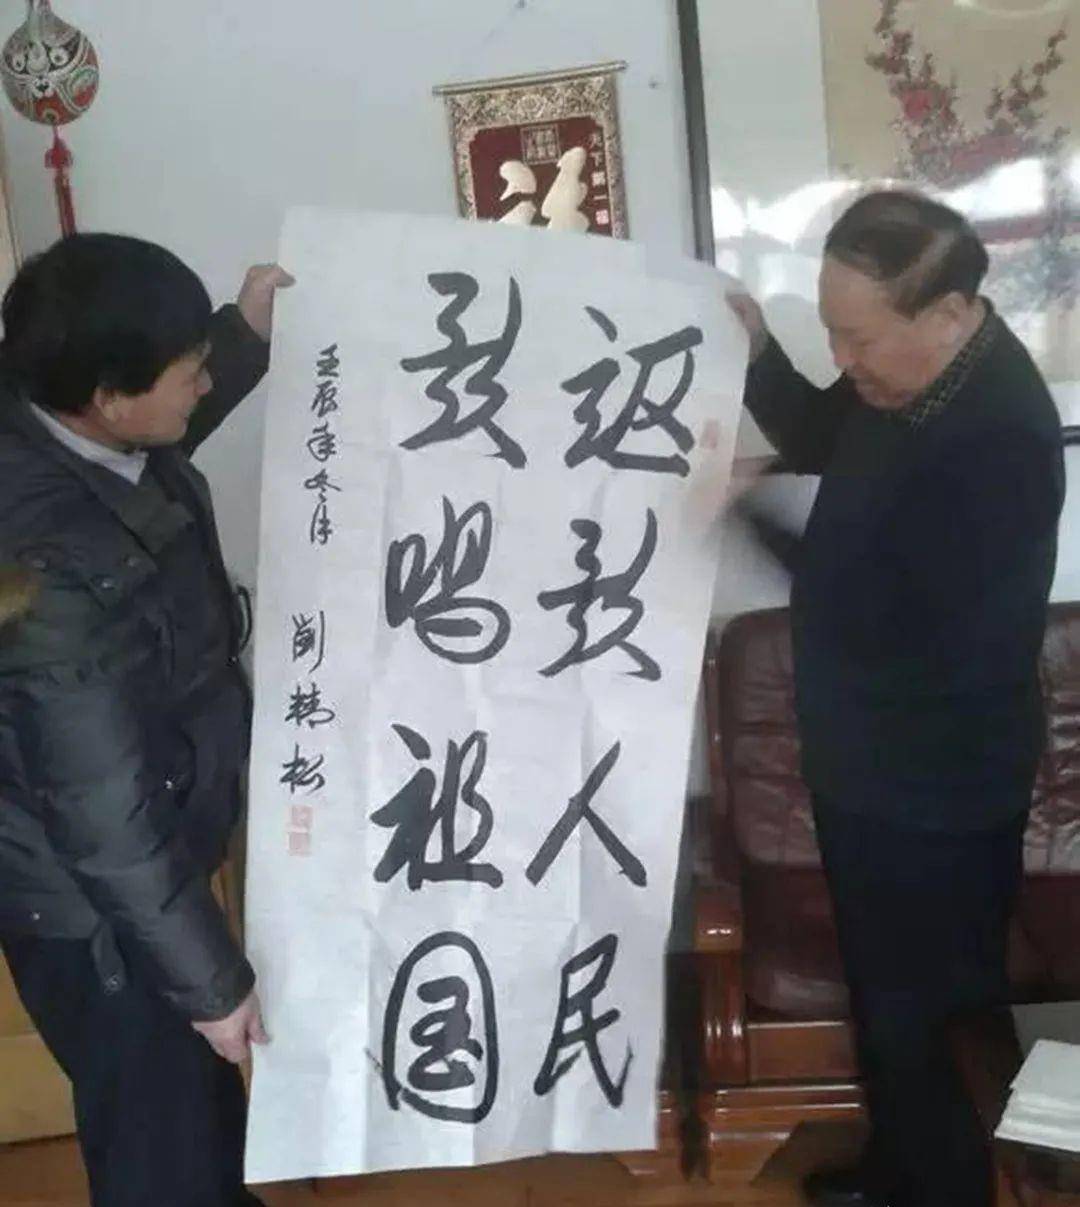 天下第一
讴歌人民
歌唱祖国
壬辰年冬
劉精松